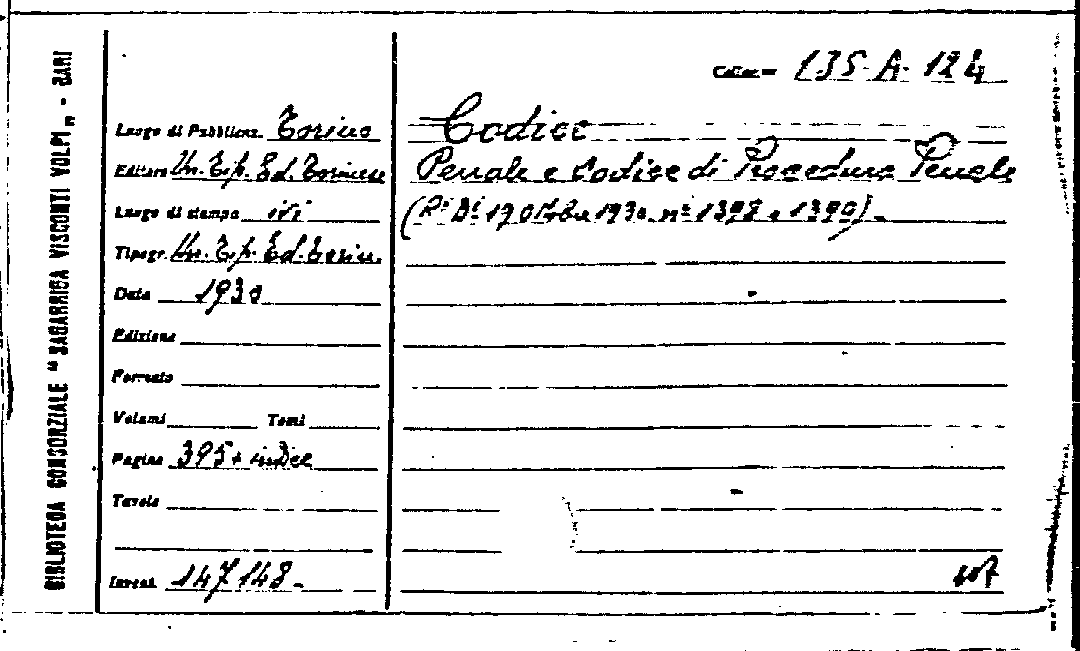 BIBLIOTECA CONSORZIALE "SAGARRIGA VISCONTI VOLPI" - BARI
Colloc. 135-A-124
Luogo di Pubblicaz. Torino
Editore Un. Tip. Ed. Torinese
Luogo di stampa ivi
Tipogr. Un. Tip. Ed. Torin.
Data 1930
Edizione
Formato
Volumi Tomi
Pagine 395 + indice
Tavole
Invent. 147148.
Codice
Penale e Codice di Procedura Penale
(R.i D.i 19 Ottobre 1930 ni 1398 e 1399).